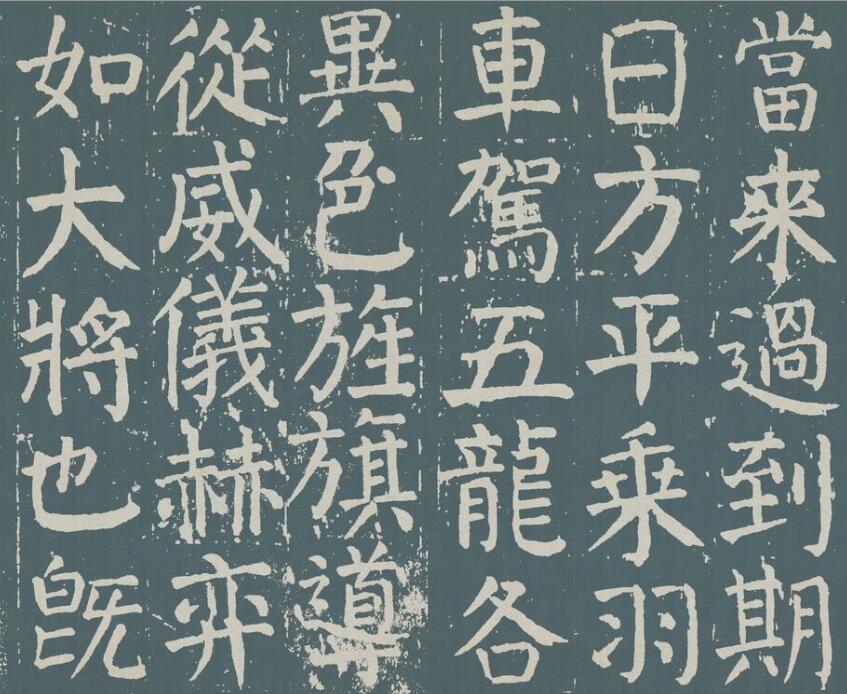 當來過到期
日方平乗羽
車駕五龍各
異色旌旗導
從威儀赫弈
如大將也既